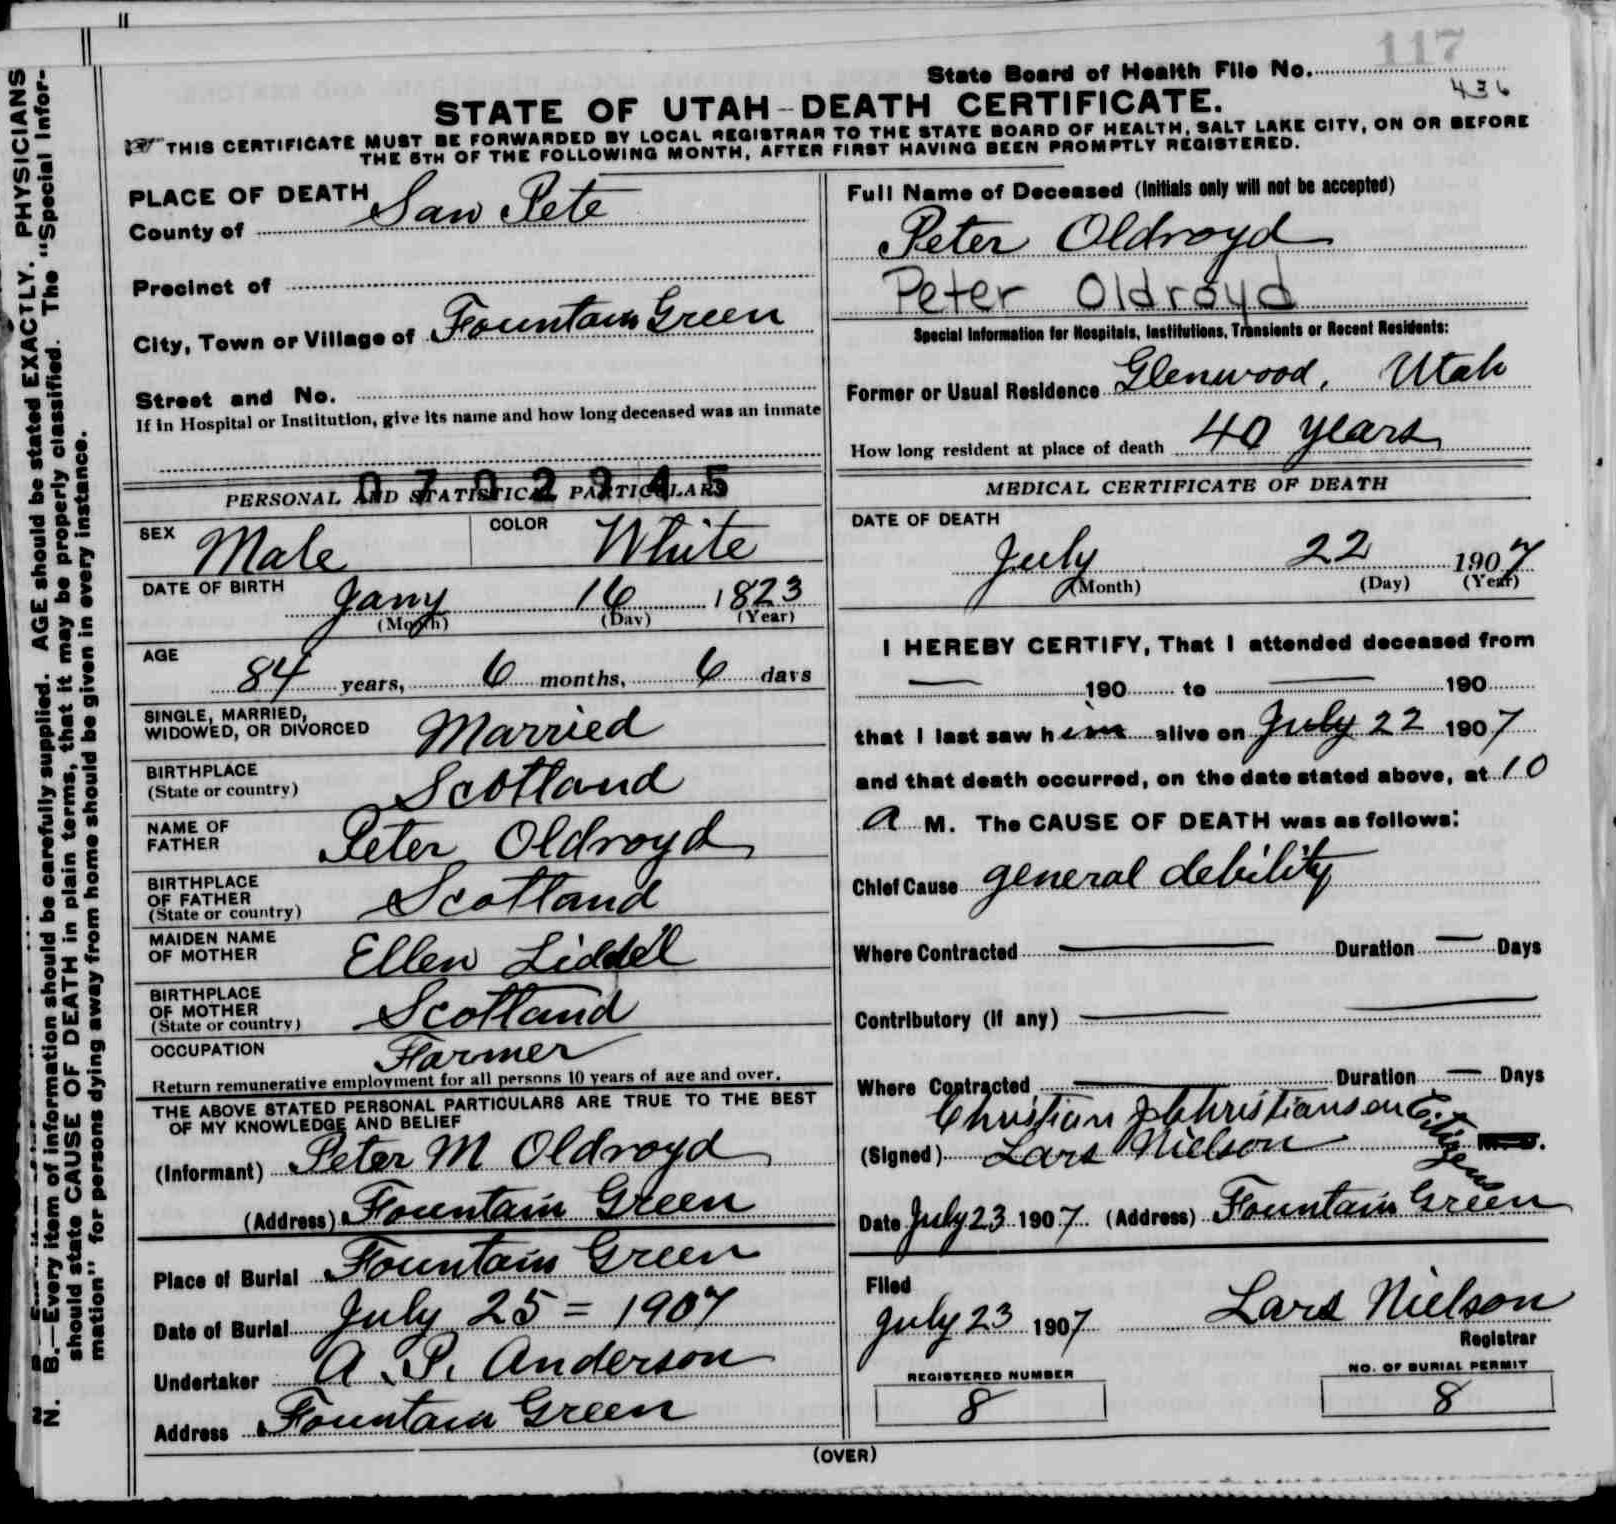 117
State Board of Health File No.
436
STATE OF UTAH - DEATH CERTIFICATE.
THIS CERTIFICATE MUST BE FORWARDED BY LOCAL REGISTRAR TO THE STATE BOARD OF HEALTH, SALT LAKE CITY, ON OR BEFORE
THE 5TH OF THE FOLLOWING MONTH, AFTER FIRST HAVING BEEN PROMPTLY REGISTERED.
N. B.—Every item of information should be carefully supplied. AGE should be stated EXACTLY. PHYSICIANS
should state CAUSE OF DEATH in plain terms, that it may be properly classified. The "Special Infor-
mation" for persons dying away from home should be given in every instance.
PLACE OF DEATH
County of San Pete
Precinct of
City, Town or Village of Fountain Green
Street and No.
If in Hospital or Institution, give its name and how long deceased was an inmate
0702945
PERSONAL AND STATISTICAL PARTICULARS
SEX Male COLOR White
DATE OF BIRTH Jany 16 1823
(Month) (Day) (Year)
AGE 84 years, 6 months, 6 days
SINGLE, MARRIED,
WIDOWED, OR DIVORCED Married
BIRTHPLACE
(State or country) Scotland
NAME OF
FATHER Peter Oldroyd
BIRTHPLACE
OF FATHER
(State or country) Scotland
MAIDEN NAME
OF MOTHER Ellen Liddel
BIRTHPLACE
OF MOTHER
(State or country) Scotland
OCCUPATION Farmer
Return remunerative employment for all persons 10 years of age and over.
THE ABOVE STATED PERSONAL PARTICULARS ARE TRUE TO THE BEST
OF MY KNOWLEDGE AND BELIEF
(Informant) Peter M Oldroyd
(Address) Fountain Green
Place of Burial Fountain Green
Date of Burial July 25 = 1907
Undertaker A. P. Anderson
Address Fountain Green
Full Name of Deceased (Initials only will not be accepted)
Peter Oldroyd
Peter Oldroyd
Special Information for Hospitals, Institutions, Transients or Recent Residents:
Former or Usual Residence Glenwood, Utah
How long resident at place of death 40 years
MEDICAL CERTIFICATE OF DEATH
DATE OF DEATH
July 22 1907
(Month) (Day) (Year)
I HEREBY CERTIFY, That I attended deceased from
— 190 to — 190
that I last saw him alive on July 22 1907
and that death occurred, on the date stated above, at 10
a M. The CAUSE OF DEATH was as follows:
Chief Cause general debility
Where Contracted — Duration — Days
Contributory (if any) — —
Where Contracted — Duration — Days
Christian J Christianson Citizens
(Signed) Lars Nielson
Date July 23 1907 (Address) Fountain Green
Filed
July 23 1907 Lars Nielson
Registrar
REGISTERED NUMBER
8
NO. OF BURIAL PERMIT
8
(OVER)